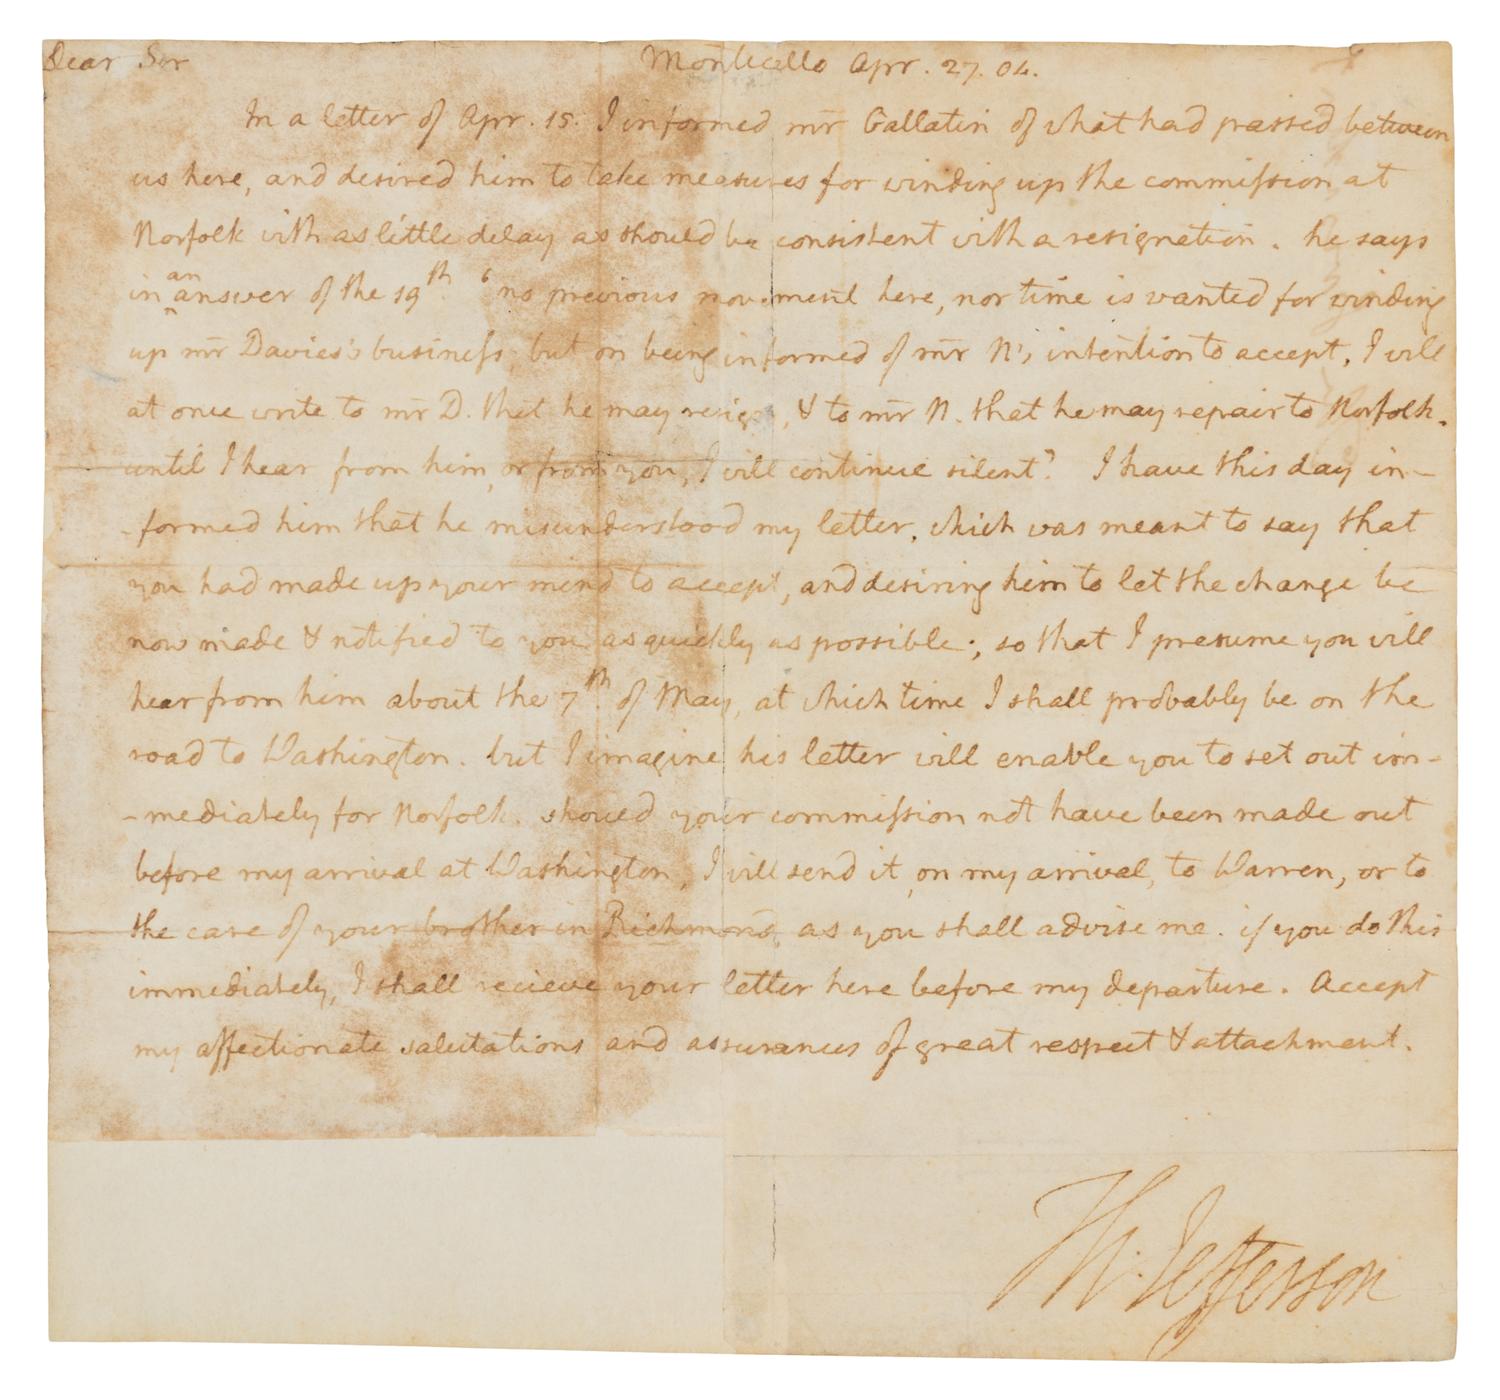 Dear Sir Monticello Apr. 27. 04.
In a letter of Apr. 15. I informed mr Gallatin of what had passed between
us here, and desired him to take measures for winding up the commission at
Norfolk with as little delay as should be consistent with a resignation. he says
in an answer of the 19th. 'no previous movement here, nor time is wanted for winding
up mr Davies's business, but on being informed of mr N's intention to accept, I will
at once write to mr D. that he may resign, & to mr N. that he may repair to Norfolk.
until I hear from him, or from you, I will continue silent.' I have this day in-
-formed him that he misunderstood my letter, which was meant to say that
you had made up your mind to accept, and desiring him to let the change be
now made & notified to you as quickly as possible; so that I presume you will
hear from him about the 7th. of May, at which time I shall probably be on the
road to Washington. but I imagine his letter will enable you to set out im-
-mediately for Norfolk. should your commission not have been made out
before my arrival at Washington, I will send it, on my arrival, to Warren, or to
the care of your brother in Richmond, as you shall advise me. if you do this
immediately, I shall recieve your letter here before my departure. Accept
my affectionate salutations and assurances of great respect & attachment.
Th: Jefferson